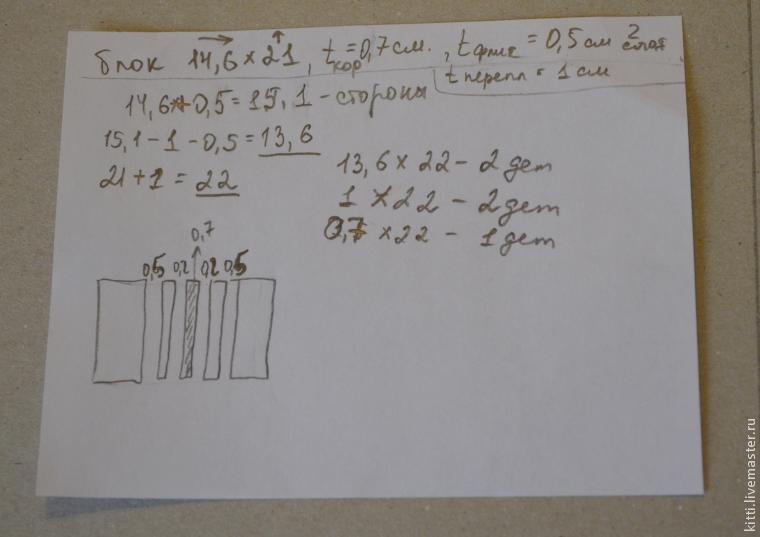 блок 14,6 × 21, tкор = 0,7 см., tфлис = 0,5 см 2 слоя
t перепл = 1 см
14,6 + 0,5 = 15,1 - стороны
15,1 - 1 - 0,5 = 13,6
21 + 1 = 22
13,6 × 22 - 2 дет
1 × 22 - 2 дет
0,7 × 22 - 1 дет
0,7
0,5 0,2 0,2 0,5
kitti.livemaster.ru